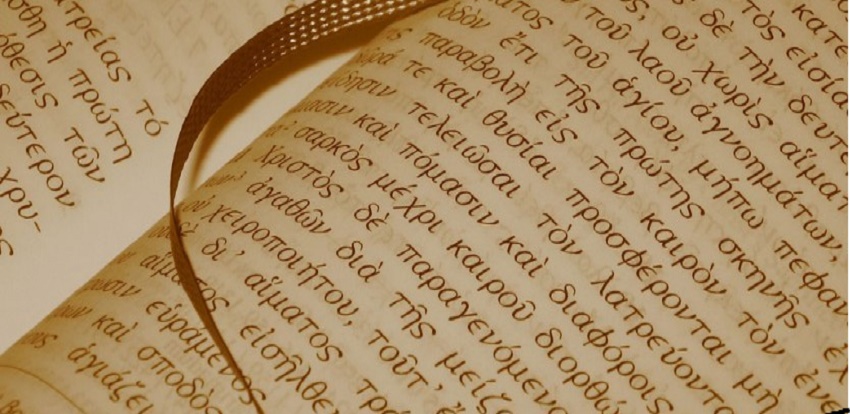 ατρείας τό
σθη ἡ πρώτη
όθεσις τῶν
δεύτερον
χρυ-
ς
κατε
τὸς εἰσία
ς δὲ τὴν δευτέ
ς, οὐ χωρὶς αἵματ
τοῦ λαοῦ ἀγνοημάτων,
ατος τοῦ ἁγίου, μήπω πεφαν
ὁδὸν ἔτι τῆς πρώτης σκηνῆς ἐχ
παραβολὴ εἰς τὸν καιρὸν τὸν ἐνε
ῶρά τε καὶ θυσίαι προσφέρονται μὴ
ίδησιν τελειῶσαι τὸν λατρεύοντ
μασιν καὶ πόμασιν καὶ διαφόροις
σαρκὸς μέχρι καιροῦ διορθώ
Χριστὸς δὲ παραγενόμενο
ἀγαθῶν διὰ τῆς μείζο
οὐ χειροποιήτου, τοῦτ' ἔ
δι' αἵματος τρά
αἵματος εἰσῆλθε
ουσιν εὑράμενος
καὶ σποδὸς
ἁγιάζει